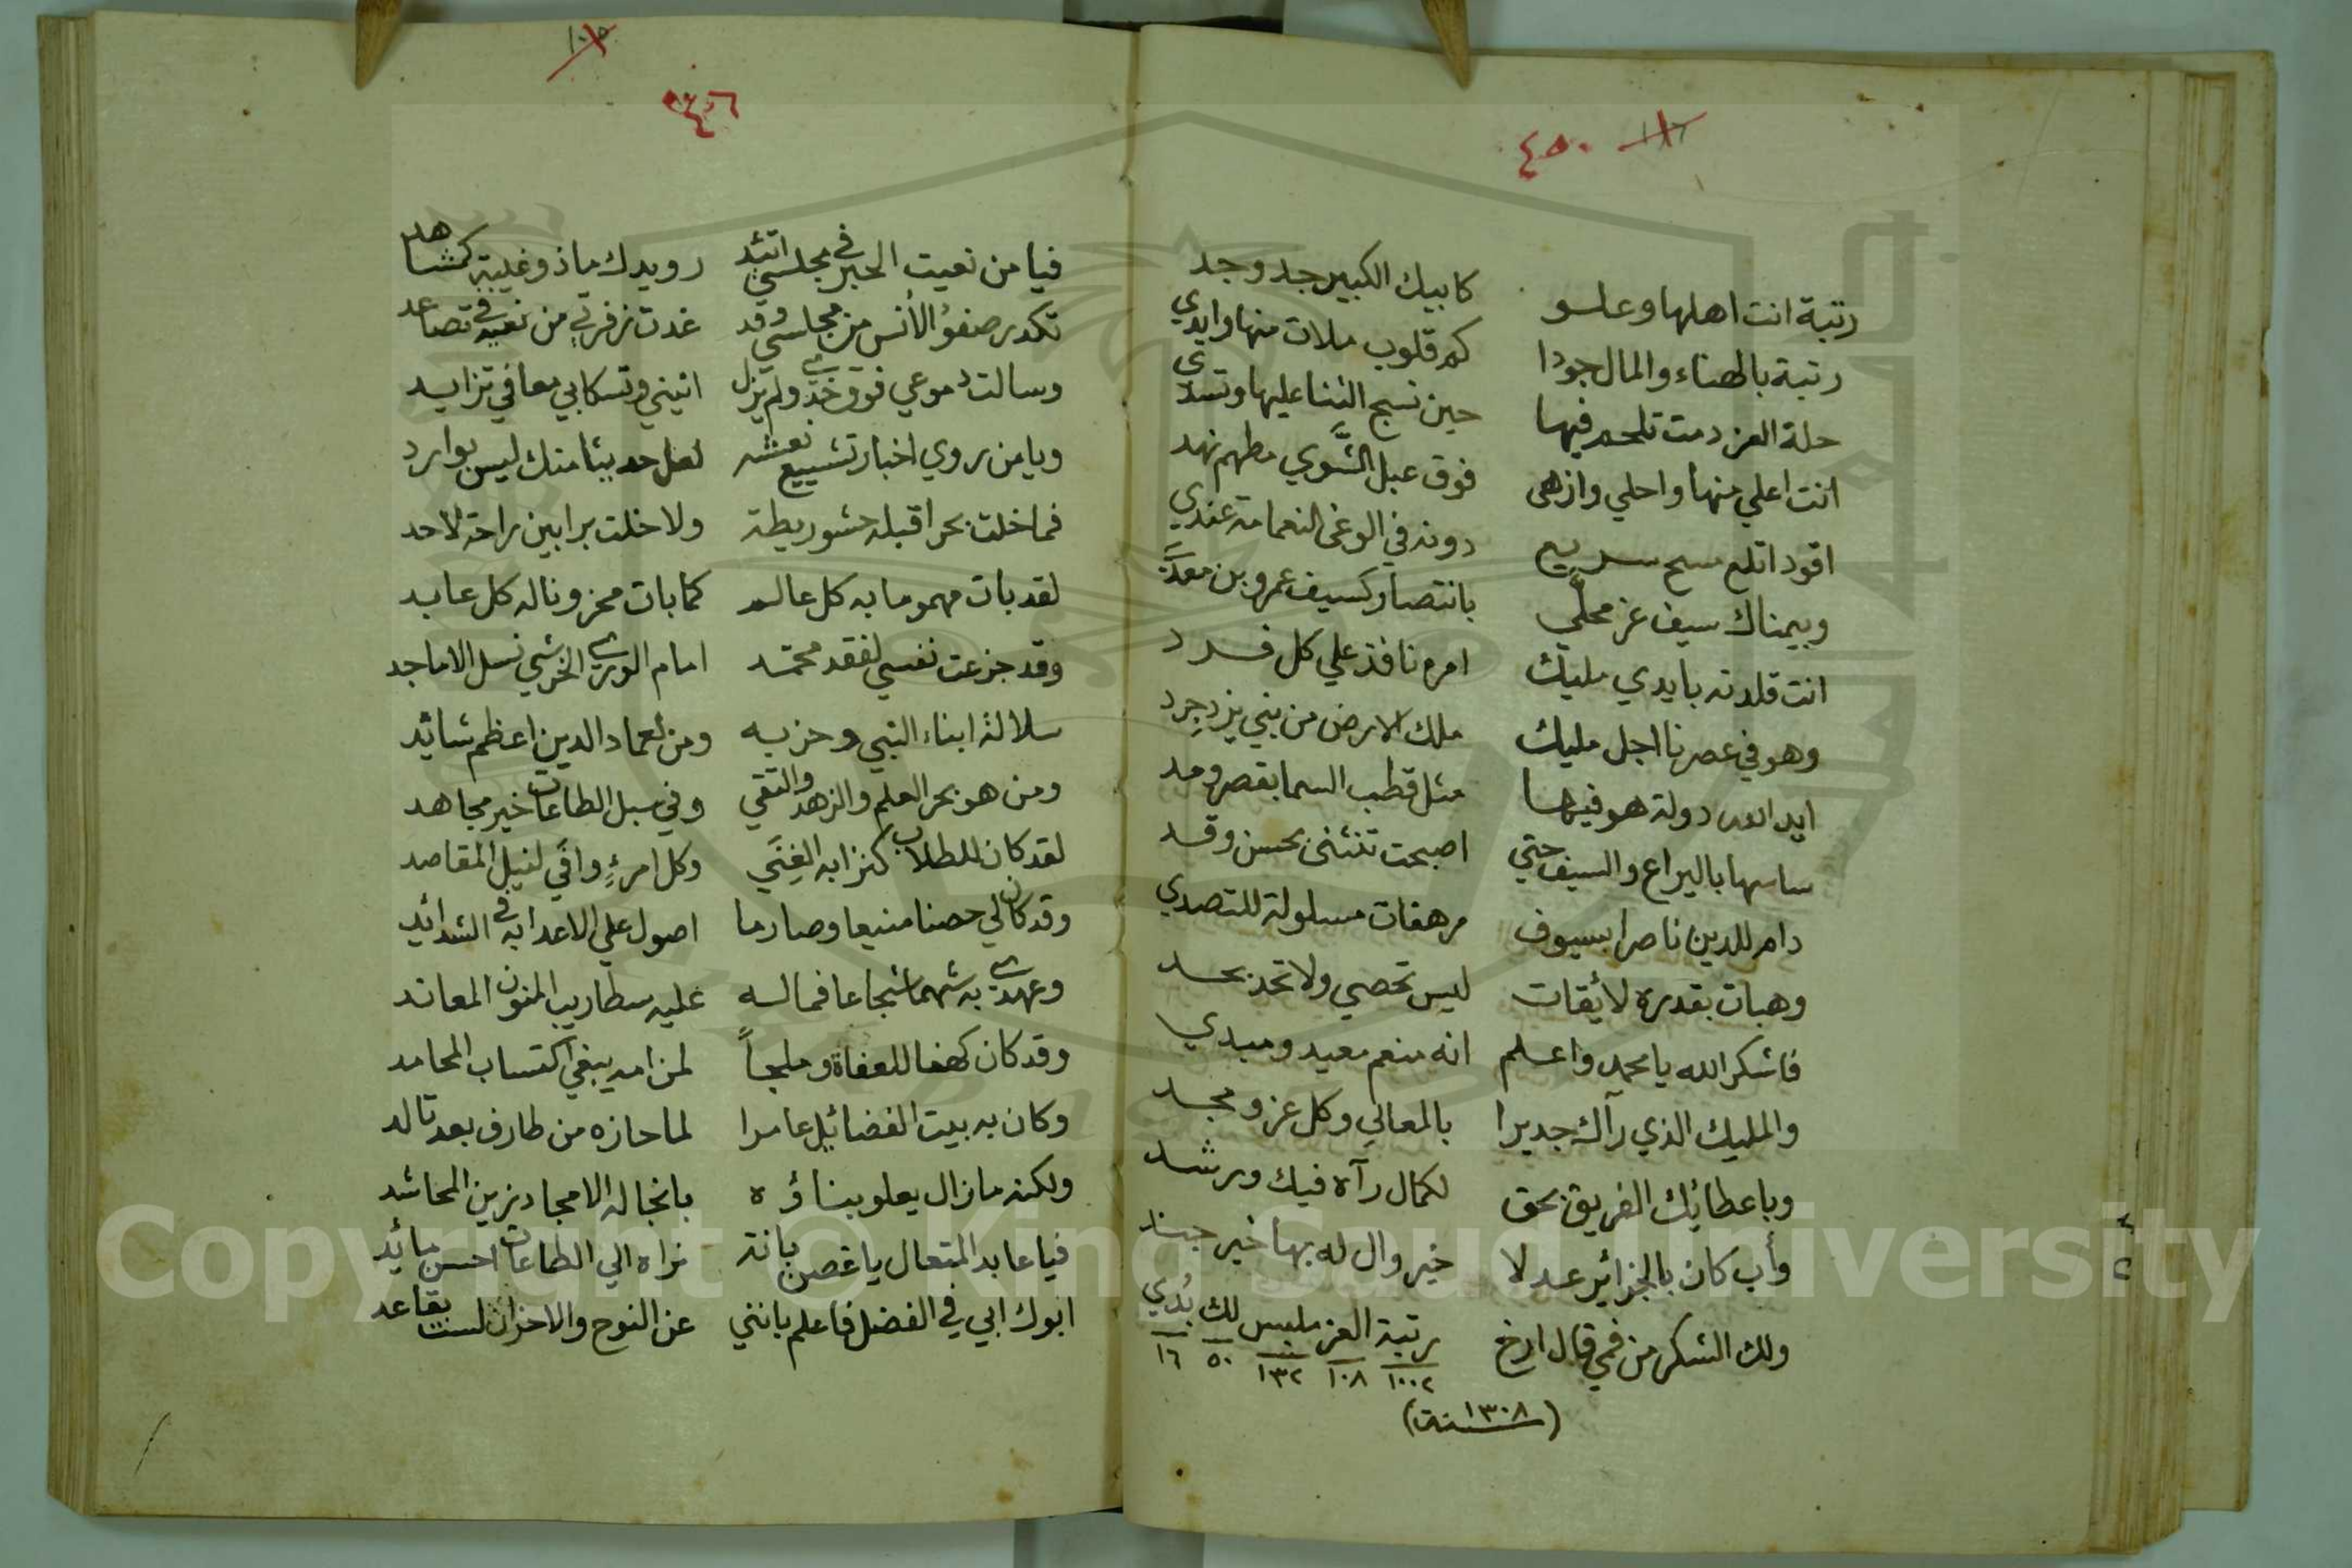 ٤٥٠
رتبة انت اهلها وعلو كابيك الكبير جد وجد
رتبة بالهناء والمال جودا كم قلوب ملات منها وايدي
حلة العز دمت تلحم فيها حين نسج الثنا عليها وتسدي
انت اعلي منها واحلي وازهى فوق عبل الشَّوي مطهم نهد
اقود اتلع سبح سريع دونه في الوغى النعامة عندي
وبيمناك سيف عز محلّي بانتصار كسيف عمرو بن معدَّ
انت قلدته بايدي مليك امره نافذ علي كل فرد
وهو في عصرنا اجل مليك ملك الارض من بني يزدجرد
ايد الله دولة هو فيها مثل قطب السما بقصر ومد
ساسها باليراع والسيف حتي اصبحت تنثنى بحسن وقد
دام للدين ناصرا بسيوف مرهفات مسلولة للتصدي
وهبات بقدره لائقات ليس تحصي ولا تحد بحد
فاشكر الله يا محمد واعلم انه منعم معيد ومبدي
والمليك الذي رآك جديرا بالمعالي وكل عز ومجد
وباعطائك الفريق بحق لكمال رآه فيك ورشد
وأب كان بالجزائر عدلا خير وال له بها خير جند
ولك الشكر من فمي قال ارخ رتبة العز ملبس لك بُدي
١٠٠٢ ١٠٨ ١٣٢ ٥٠ ١٦
(سنة ١٣٠٨)
فيا من نعيت الحبر في مجلسي اتئد رويدك ماذو غيبة كمشاهد
تكدر صفوُ الأنس من مجلسي وقد غدت زفرتي من نعيه في تصاعد
وسالت دموعي فوق خدي ولم يزل انيني وتسكابي معا في تزايد
ويا من روي اخبار تشييع نعشه لعل حديثا منك ليس بوارد
فما خلت بحرا قبله حشو ريطة ولا خلت برا بين راحة لاحد
لقد بات مهموما به كل عالم كما بات محزونا له كل عابد
وقد جزعت نفسي لفقد محمد امام الوري الخرشي نسل الاماجد
سلالة ابناء النبي وحزبه ومن لعماد الدين اعظم شائد
ومن هو بحر العلم والزهد والتقي وفي سبل الطاعات خير مجاهد
لقد كان للطلاب كنزا به الغِنَي وكل امرءٍ وافَي لنيل المقاصد
وقد كان لي حصنا منيعا وصارما اصول علي الاعدا به في الشدائد
وعهدي به شهما شجاعا فما له عليه سطا ريب المنون المعاند
وقد كان كهفا للعفاة وملجأً لمن امه يبغي اكتساب المحامد
وكان به بيت الفضائل عامرا لما حازه من طارف بعد تالد
ولكنه مازال يعلو بناؤه بانجاله الامجاد زين المحاشد
فيا عابد المتعال يا غصن بانة نراه الي الطاعات احسن مائد
ابوك ابي في الفضل فاعلم بانني عن النوح والاحزان لست بقاعد
Copyright © King Saud University